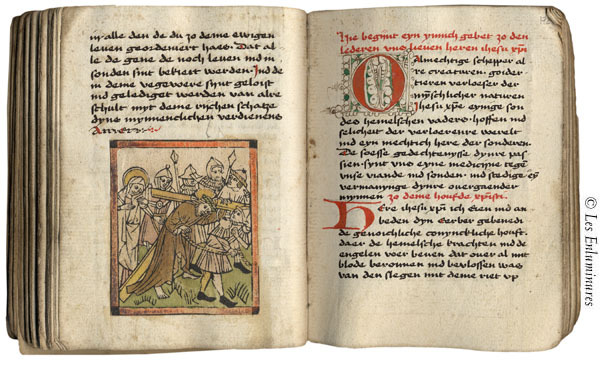 in alle den de du zo deme ewigen
leuen geordeniert haes. Dat al
le de gene de noch leuen ind in
sonden sint bekiert werden. Ind de
in deme vegevuere sijnt geloist
ind geledigt werden van alre
schult myt deme rijchen schatze
dyns mynnenclichen verdienens
Amen
Hie begint eyn ynnich gebet zo den
lederen vns lieuen heren ihesu xpi
O Almechtige schepper al
re creaturen. goider
tieren verloeser der
mynschlicher naturen
Ihesu xpe eynige son
des hemelschen vaders. hoffen ind
selicheit der verlaerenre werelt
ind eyn mechtich here der sonderen.
De soesse gedechtenysse dynre pas
sien synt vns eyne medicine tege
vnse viande ind sonden. ind stedige ey
vermanynge dynre ouergaender
mynnen zo deme houfde xpisti.
Here ihesu xpe ich eren ind an
beden dyn eerber gebenedi
de genoichliche conyncliche houft.
daer de hemelsche krachten ind de
engelen voer beuen dat ouer al mit
blode beronnen ind bevlossen was
van den slegen mit deme riet vp
© Les Enluminures